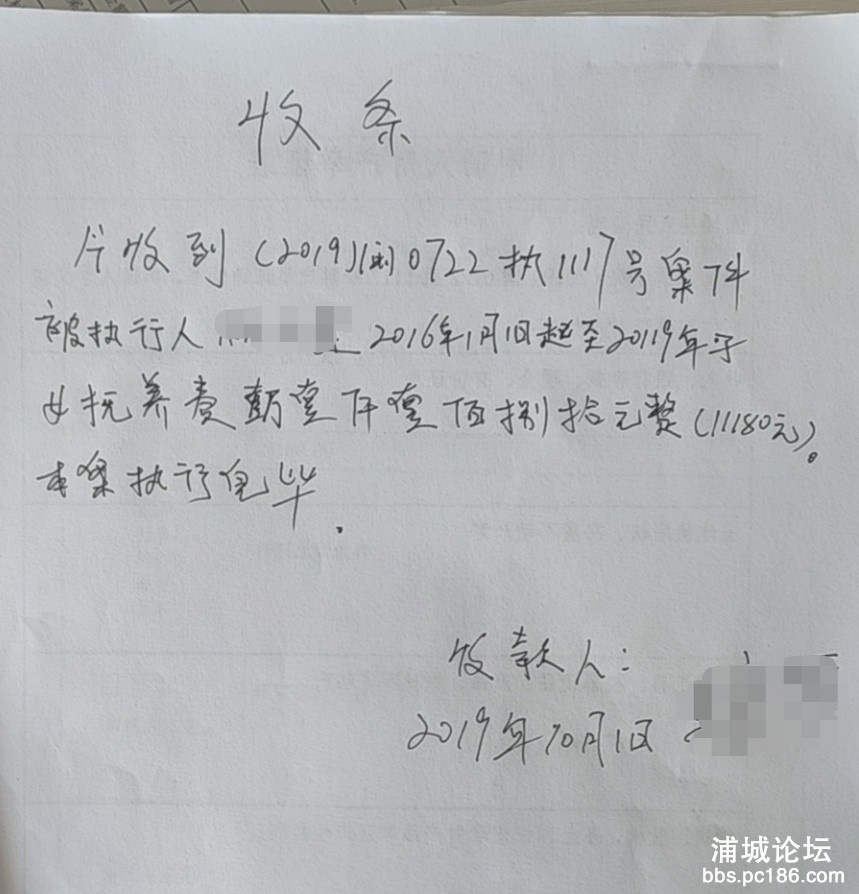 收条
今收到(2019)闽0722执1117号案件
被执行人 2016年1月1日起至20119年子
女抚养费壹仟壹佰捌拾元整(11180元)。
本案执行完毕.
收款人:
2019年10月1日
浦城论坛
bbs.pc186.com